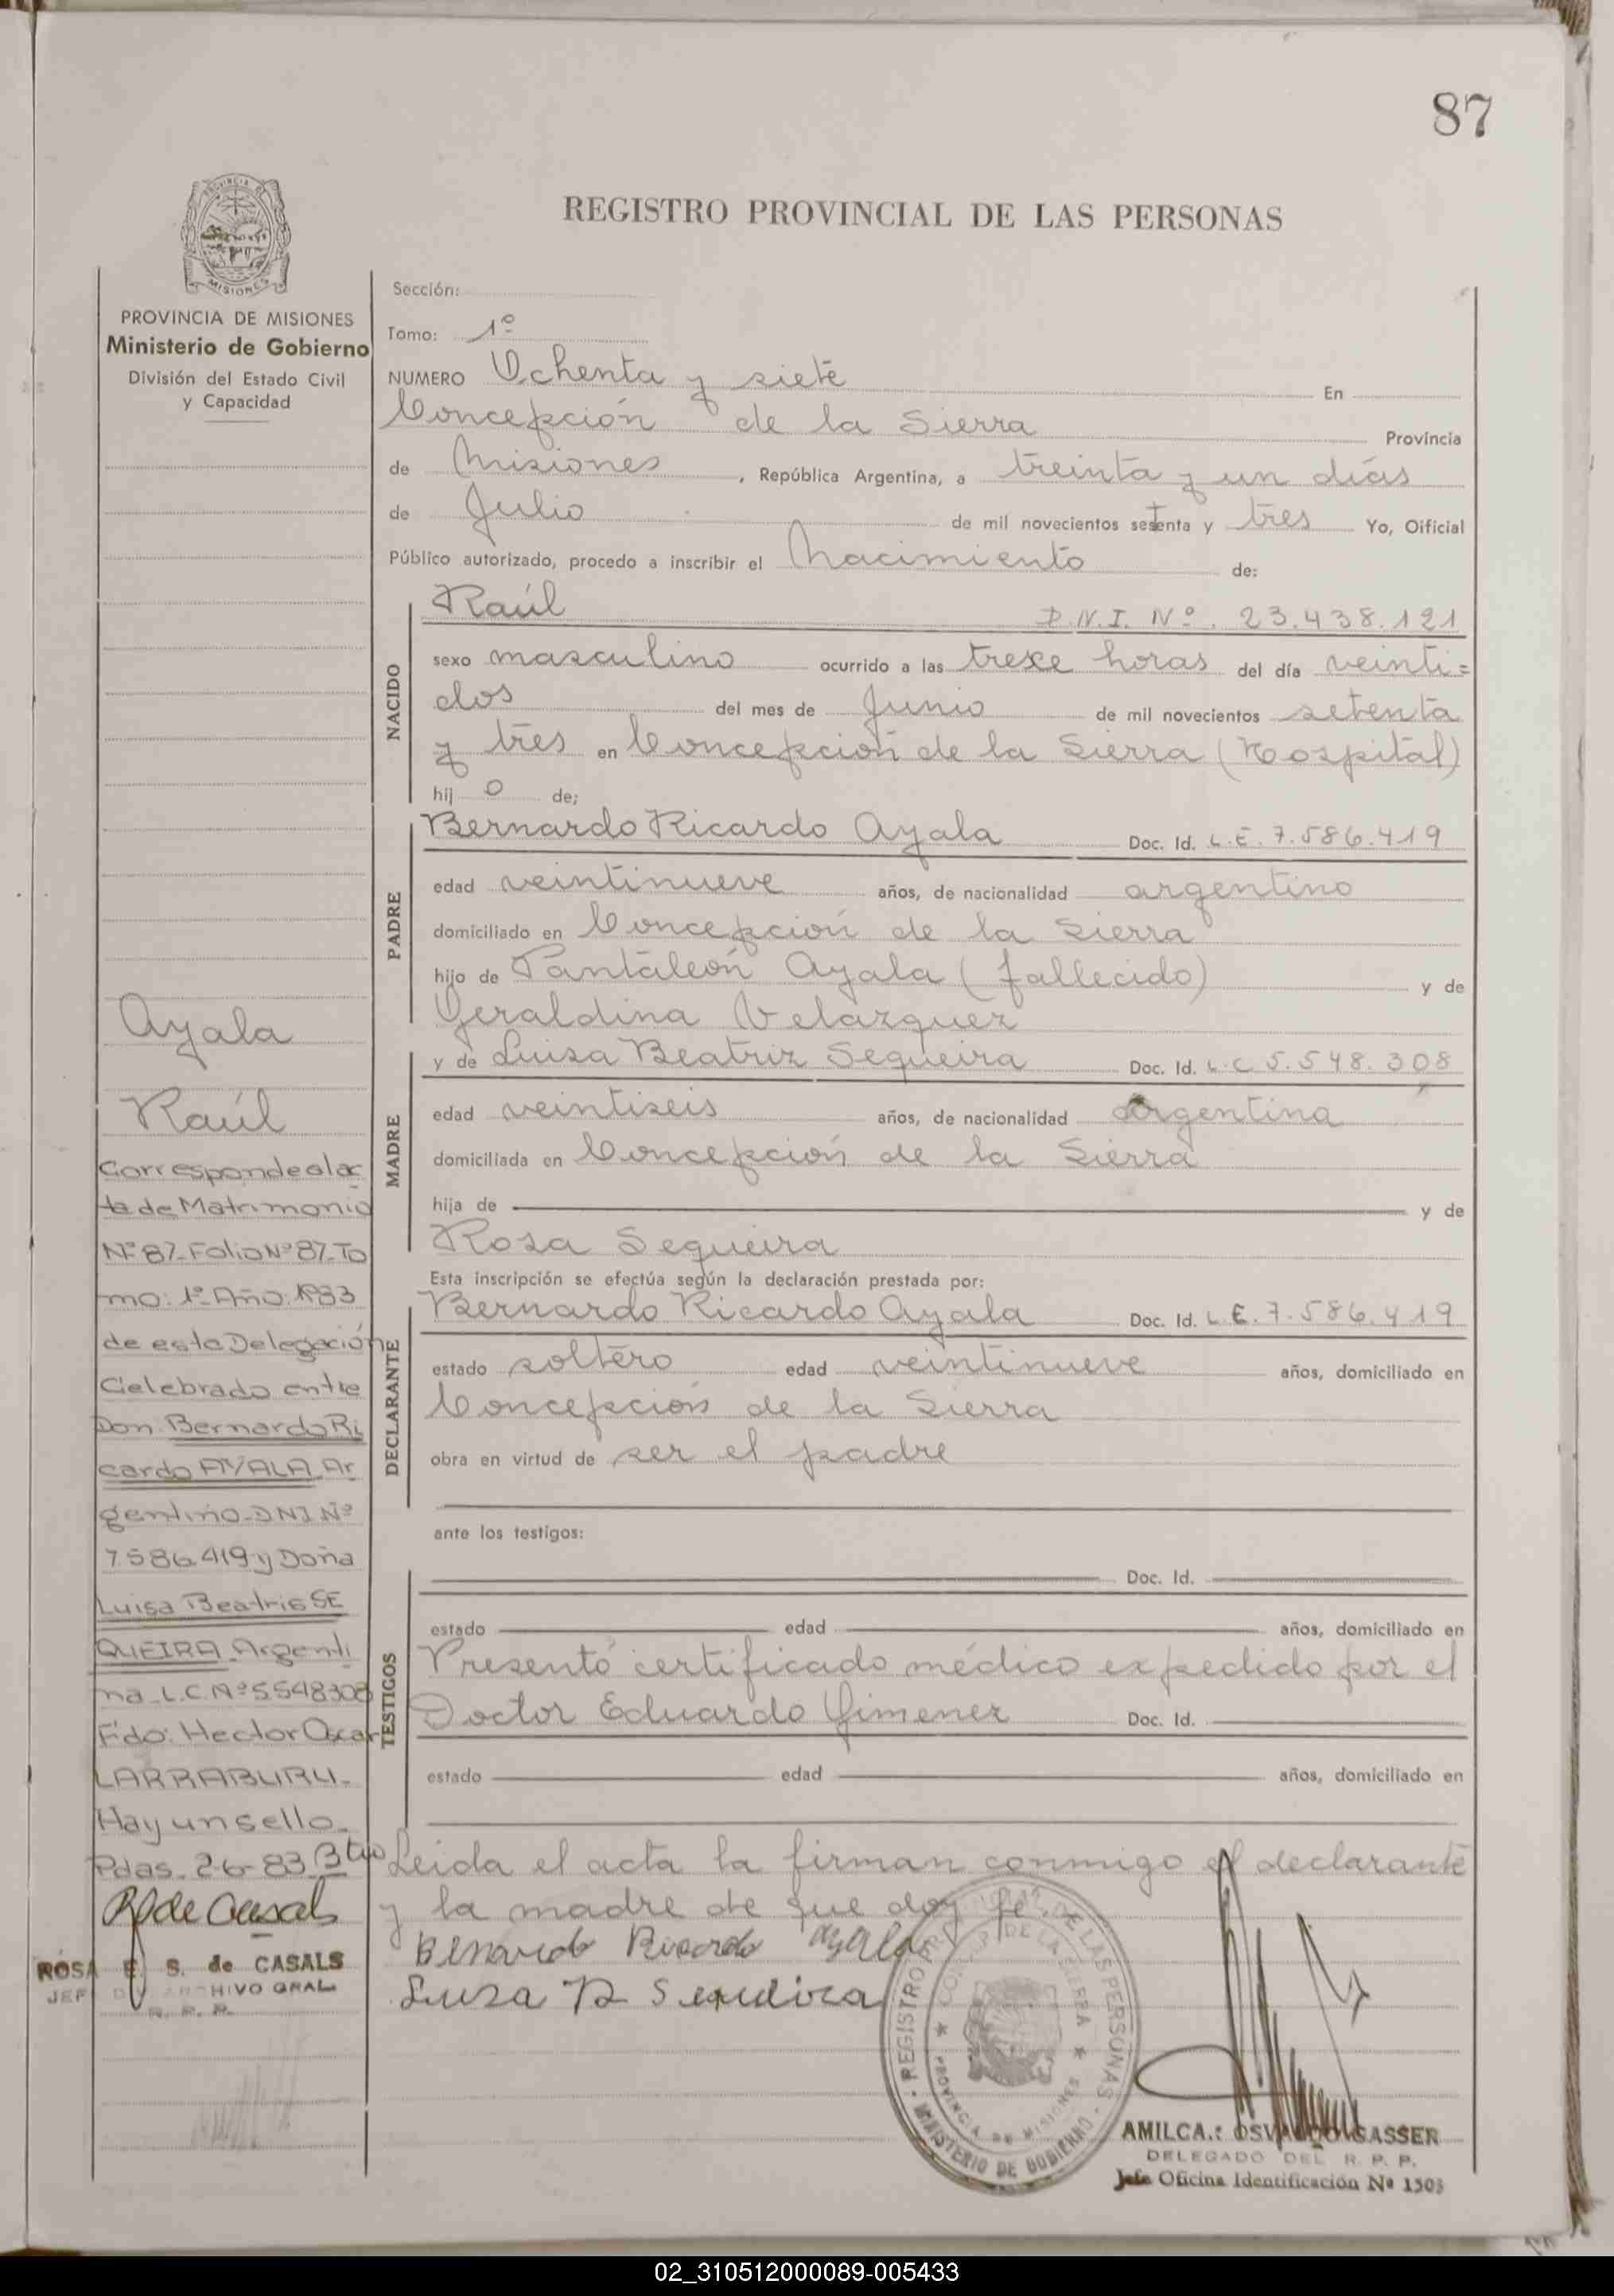 87
REGISTRO PROVINCIAL DE LAS PERSONAS
MISIONES
PROVINCIA DE MISIONES
Ministerio de Gobierno
División del Estado Civil
y Capacidad
Sección:
Tomo: 1º
NUMERO Ochenta y siete En
Concepción de la Sierra Provincia
de Misiones, República Argentina, a treinta y un días
de Julio de mil novecientos setenta y tres Yo, Oificial
Público autorizado, procedo a inscribir el Nacimiento de:
NACIDO
Raúl D.N.I. Nº. 23.438.121
sexo masculino ocurrido a las trece horas del día veinti=
dos del mes de Junio de mil novecientos setenta
y tres en Concepción de la Sierra (Hospital)
hij o de;
PADRE
Bernardo Ricardo Ayala Doc. Id. L.E. 7.586.419
edad veintinueve años, de nacionalidad argentino
domiciliado en Concepción de la Sierra
hijo de Pantaleón Ayala (fallecido) y de
Geraldina Velazquez
MADRE
y de Luisa Beatriz Sequeira Doc. Id. L.C 5.548.308
edad veintiseis años, de nacionalidad argentina
domiciliada en Concepción de la Sierra
hija de y de
Rosa Sequeira
Esta inscripción se efectúa según la declaración prestada por:
DECLARANTE
Bernardo Ricardo Ayala Doc. Id. L.E. 7.586.419
estado soltero edad veintinueve años, domiciliado en
Concepción de la Sierra
obra en virtud de ser el padre
ante los testigos:
TESTIGOS
Doc. Id.
estado edad años, domiciliado en
Presentó certificado médico expedido por el
Doctor Eduardo Gimenez Doc. Id.
estado edad años, domiciliado en
Leida el acta la firman conmigo el declarante
y la madre de que doy fe.
Bernardo Ricardo Ayala
Luisa B Sequeira
Ayala
Raúl
Corresponde al ac
ta de Matrimonio
Nº 87-Folio Nº 87-To
mo: 1º-Año: 1983
de esta Delegación
Celebrado entre
Don Bernardo Ri
cardo AYALA Ar
gentino-DNI Nº
7586.419 y Doña
Luisa Beatris SE
QUEIRA Argenti
na-L.C.Nº 5548308
Fdo: Hector Oscar
LARRABURU-
Hay un sello-
Pdas. 2-6-83
R de Casals
ROSA E. S. de CASALS
JEF ARCHIVO GRAL
R. P. P.
REGISTRO PROVINCIAL DE LAS PERSONAS
MINISTERIO DE GOBIERNO
CONCEP. DE LA SIERRA
PROVINCIA DE MISIONES
AMILCAR OSVALDO SASSER
DELEGADO DEL R. P. P.
Jefe Oficina Identificación Nº 1503
02_310512000089-005433